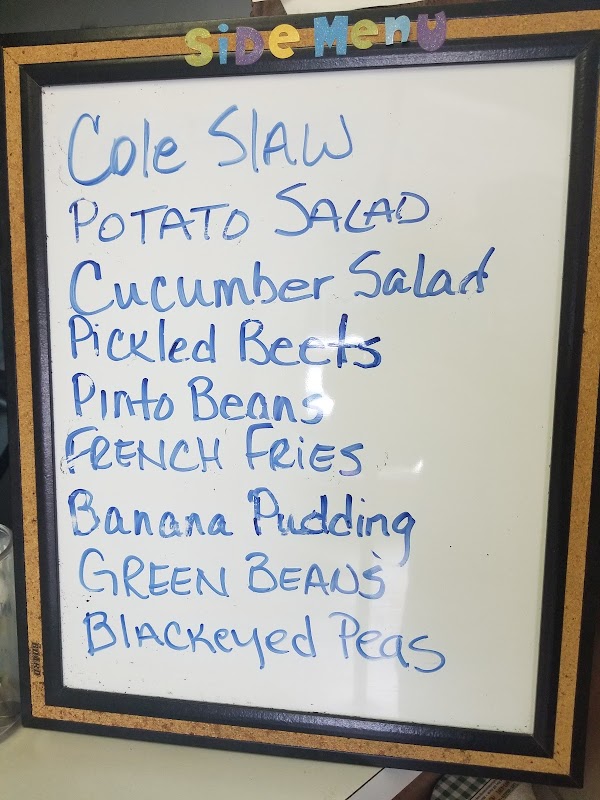 SiDe MeNU
Cole SlAW
POTATO SALAD
Cucumber Salad
Pickled Beets
Pinto Beans
FRENCH FRiES
Banana Pudding
GREEN BEANS
BlACKeyed Peas